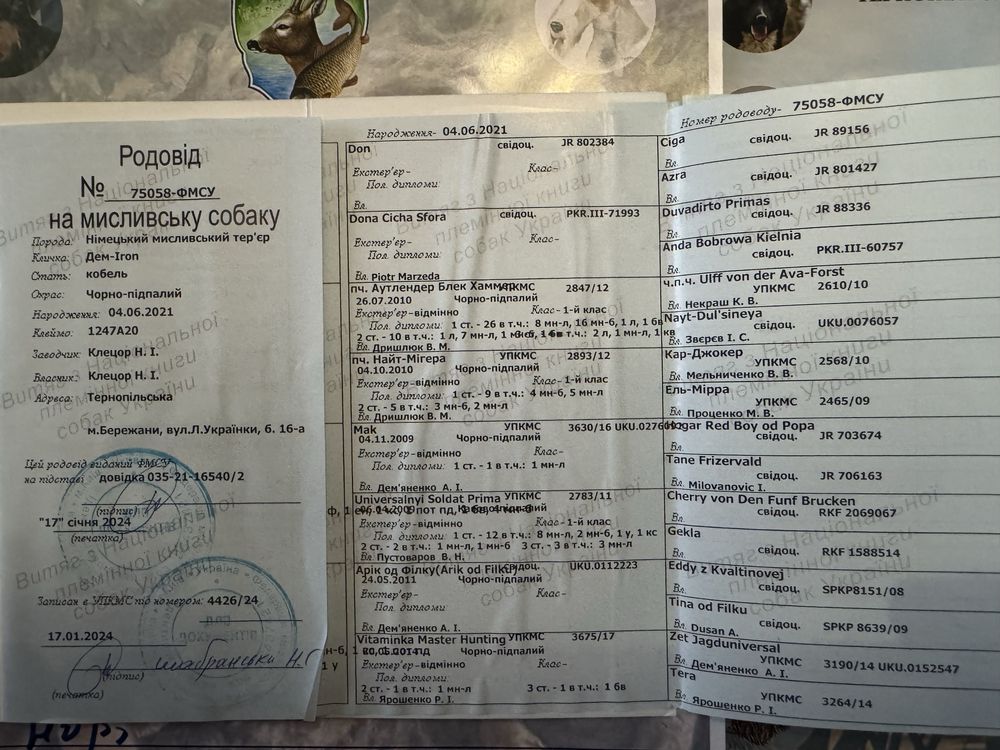 Родовід
№ 75058-ФМСУ
на мисливську собаку
Порода: Німецький мисливський тер'єр
Кличка: Дем-Iron
Стать: кобель
Окрас: Чорно-підпалий
Народження: 04.06.2021
Клеймо: 1247A20
Заводчик: Клецор Н. І.
Власник: Клецор Н. І.
Адреса: Тернопільська
м.Бережани, вул.Л.Українки, б. 16-а
Цей родовід виданий ФМСУ
на підставі довідка 035-21-16540/2
(підпис)
"17" січня 2024
(печатка)
Записан в УПКМС під номером: 4426/24
17.01.2024
(підпис)
(печатка)
Витяг з Національної племінної книги собак України
Народження- 04.06.2021
Don свідоц. JR 802384
Екстер'єр- Клас-
Пол. дипломи:
Вл.
Dona Cicha Sfora свідоц. PKR.III-71993
Екстер'єр- Клас-
Пол. дипломи:
Вл. Piotr Marzeda
пч. Аутлендер Блек Хаммер УПКМС 2847/12
26.07.2010 Чорно-підпалий
Екстер'єр-відмінно Клас- 1-й клас
Пол. дипломи: 1 ст. - 26 в т.ч.: 8 мн-л, 16 мн-б, 1 л, 1 бв
2 ст. - 10 в т.ч.: 1 л, 7 мн-л, 1 мн-б,
Вл. Дришлюк В. М.
пч. Найт-Мігера УПКМС 2893/12
04.10.2010 Чорно-підпалий
Екстер'єр-відмінно Клас- 1-й клас
Пол. дипломи: 1 ст. - 9 в т.ч.: 4 мн-б, 5 мн-л
2 ст. - 5 в т.ч.: 3 мн-б, 2 мн-л
Вл. Дришлюк В. М.
Mak УПКМС 3630/16
04.11.2009 Чорно-підпалий
Екстер'єр-відмінно Клас-
Пол. дипломи: 1 ст. - 1 в т.ч.: 1 мн-л
Вл. Дем'яненко А. І.
Universalnyi Soldat Prima УПКМС 2783/11
Екстер'єр-відмінно Клас- 1-й клас
Пол. дипломи: 1 ст. - 12 в т.ч.: 8 мн-л, 2 мн-б, 1 у, 1 кс
2 ст. - 2 в т.ч.: 1 мн-л, 1 мн-б 3 ст. - 3 в т.ч.: 3 мн-л
Вл. Пустоваров В. Н.
Арік од Філку(Arik od Filku) свідоц. UKU.0112223
24.05.2011 Чорно-підпалий
Екстер'єр- Клас-
Пол. дипломи:
Вл. Дем'яненко А. І.
Vitaminka Master Hunting УПКМС 3675/17
Чорно-підпалий
Екстер'єр-відмінно Клас-
Пол. дипломи:
2 ст. - 1 в т.ч.: 1 мн-л 3 ст. - 1 в т.ч.: 1 бв
Вл. Ярошенко Р. І.
Номер родоводу- 75058-ФМСУ
Ciga
свідоц. JR 89156
Вл.
Azra
свідоц. JR 801427
Вл.
Duvadirto Primas
свідоц. JR 88336
Вл.
Anda Bobrowa Kielnia
свідоц. PKR.III-60757
Вл.
ч.п.ч. Ulff von der Ava-Forst
УПКМС 2610/10
Вл. Некраш К. В.
Nayt-Dul'sineya
свідоц. UKU.0076057
Вл. Звєрєв І. С.
Кар-Джокер
УПКМС 2568/10
Вл. Мельниченко В. В.
Ель-Мірра
УПКМС 2465/09
Вл. Проценко М. В.
Red Boy od Popa
свідоц. JR 703674
Вл.
Tane Frizervald
свідоц. JR 706163
Вл. Milovanovic I.
Cherry von Den Funf Brucken
свідоц. RKF 2069067
Вл.
Gekla
свідоц. RKF 1588514
Вл.
Eddy z Kvaltinovej
свідоц. SPKP8151/08
Вл.
Tina od Filku
свідоц. SPKP 8639/09
Вл. Dusan A.
Zet Jagduniversal
УПКМС 3190/14 UKU.0152547
Вл. Дем'яненко А. І.
Tera
УПКМС 3264/14
Вл. Ярошенко Р. І.